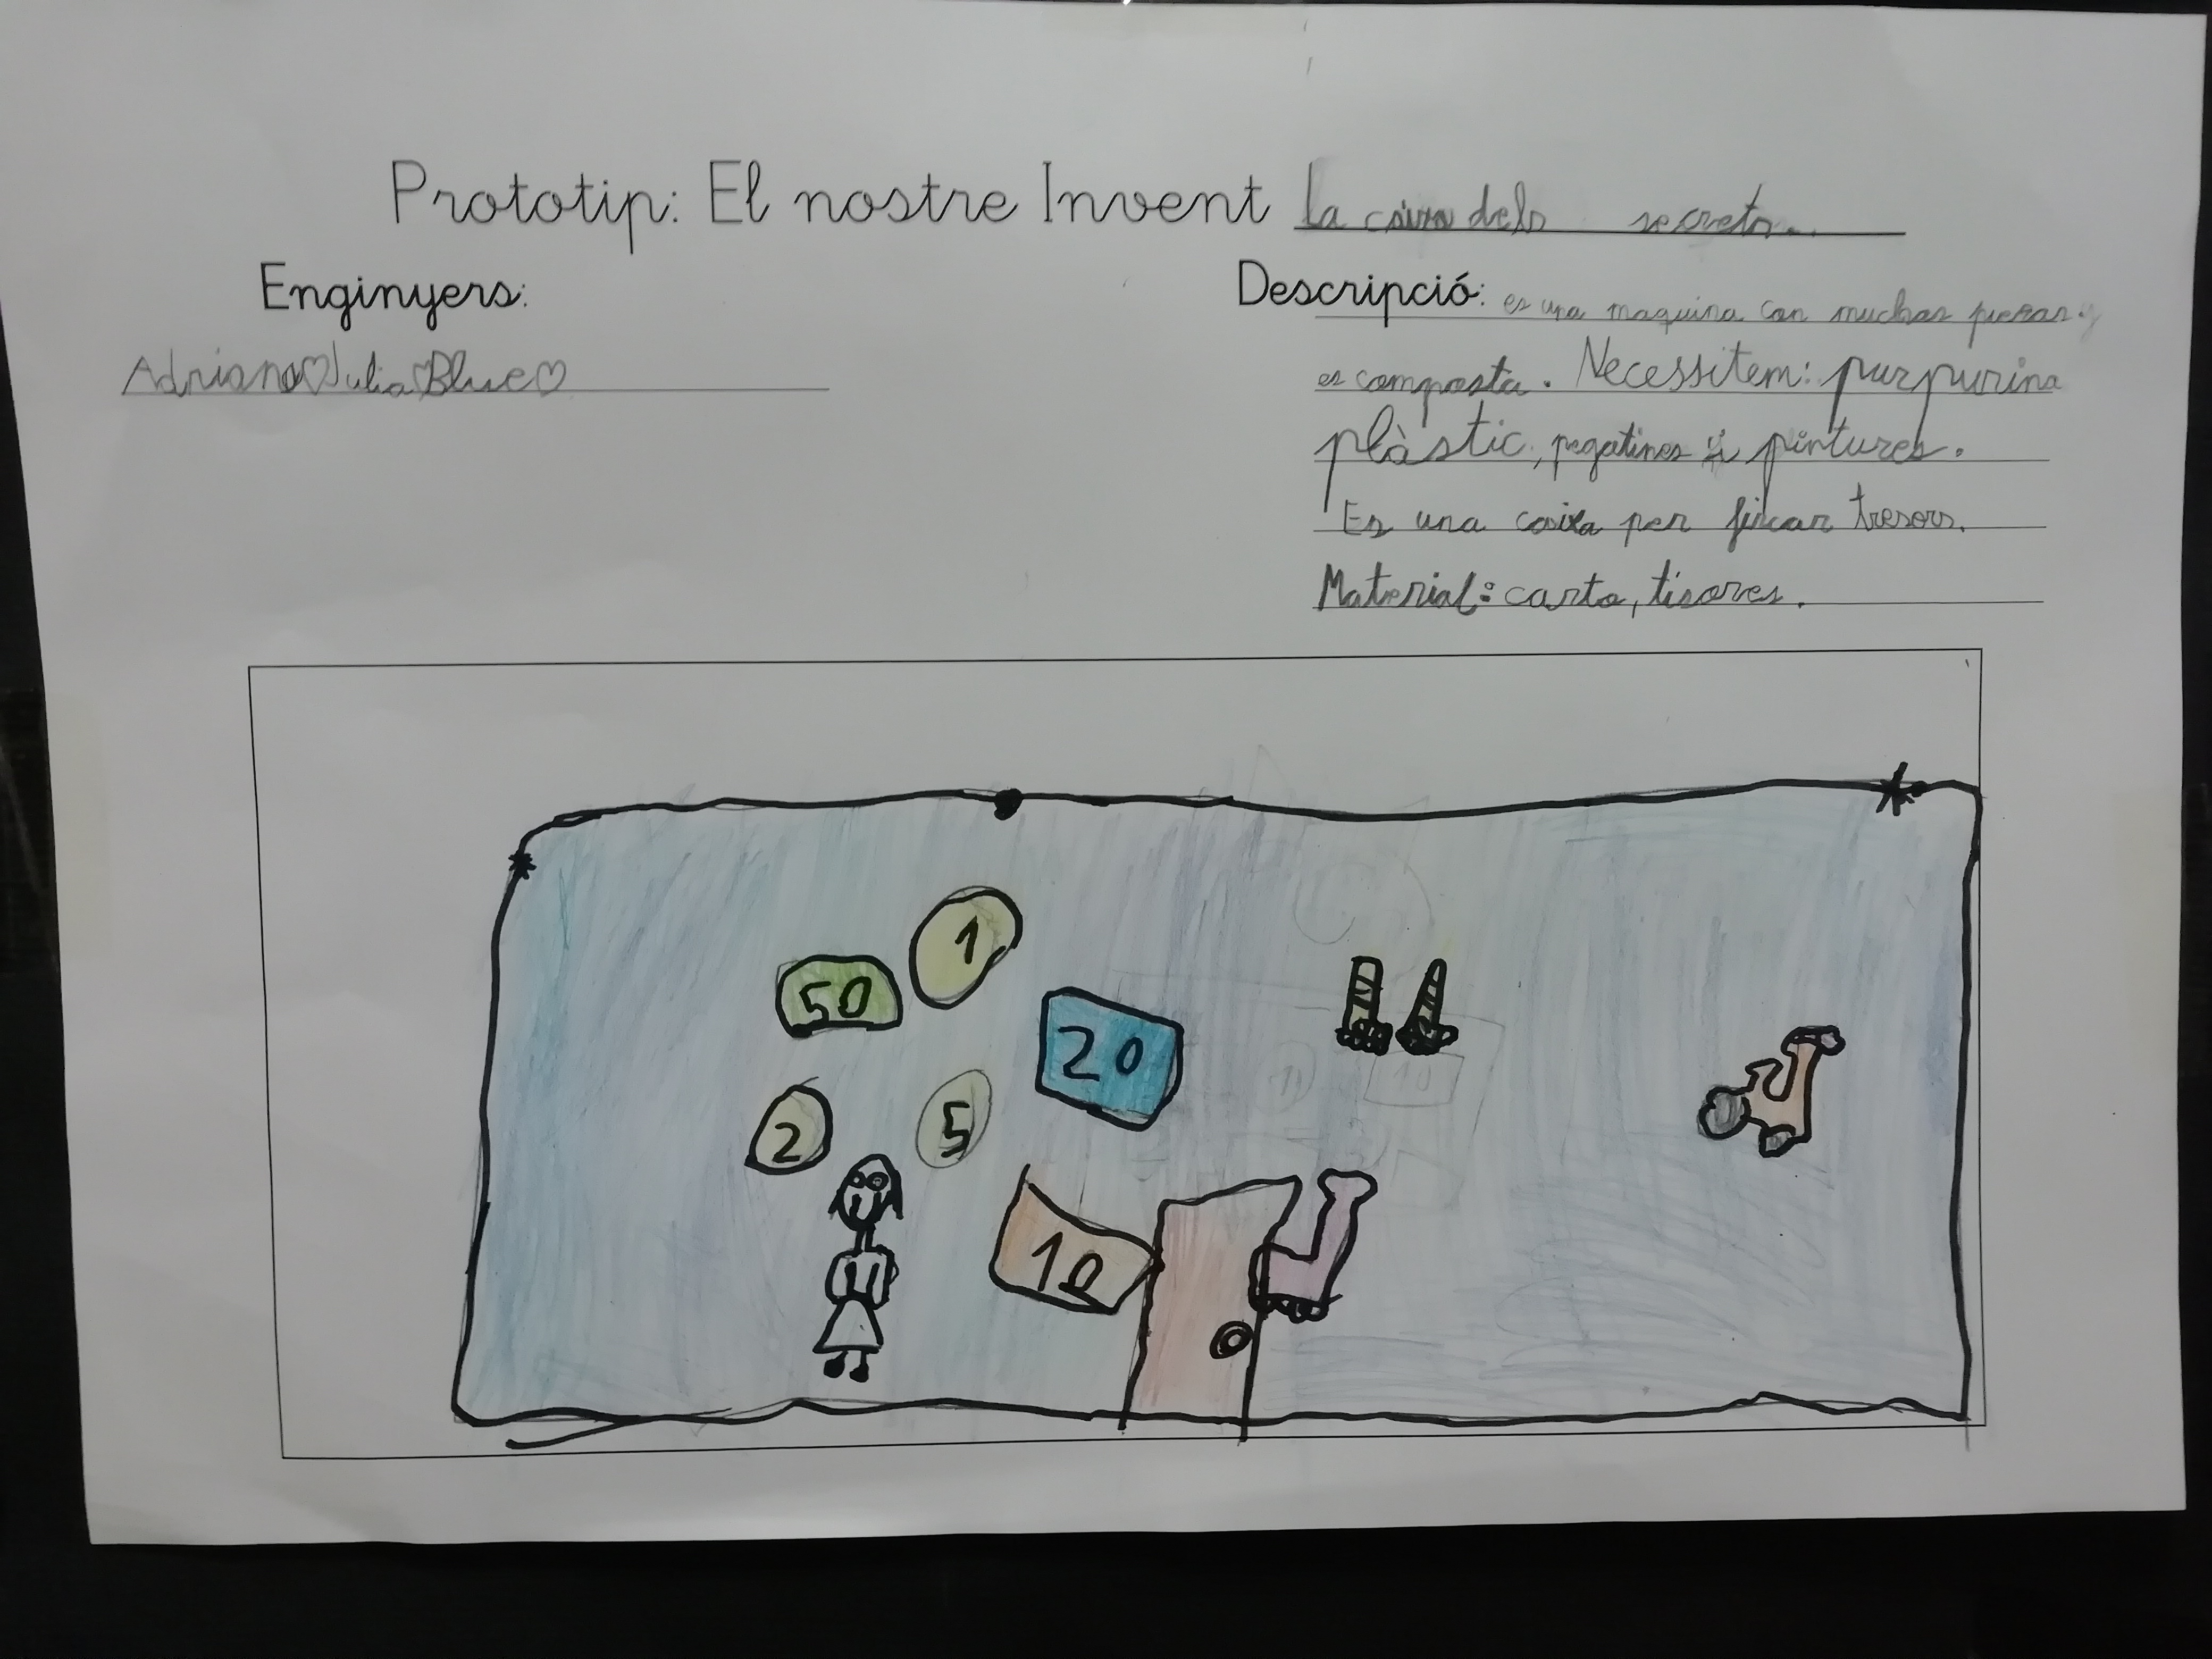 Prototip: El nostre Invent la caixa dels secrets...
Enginyers:
Adriano♡Julia♡Blue♡
Descripció: es una maquina con muchas piezas y
es composta. Necessitem: purpurina
plàstic, pegatines i pintures.
Es una caixa per ficar tresors.
Material: carto, tisores.
1
50
20
2
5
10